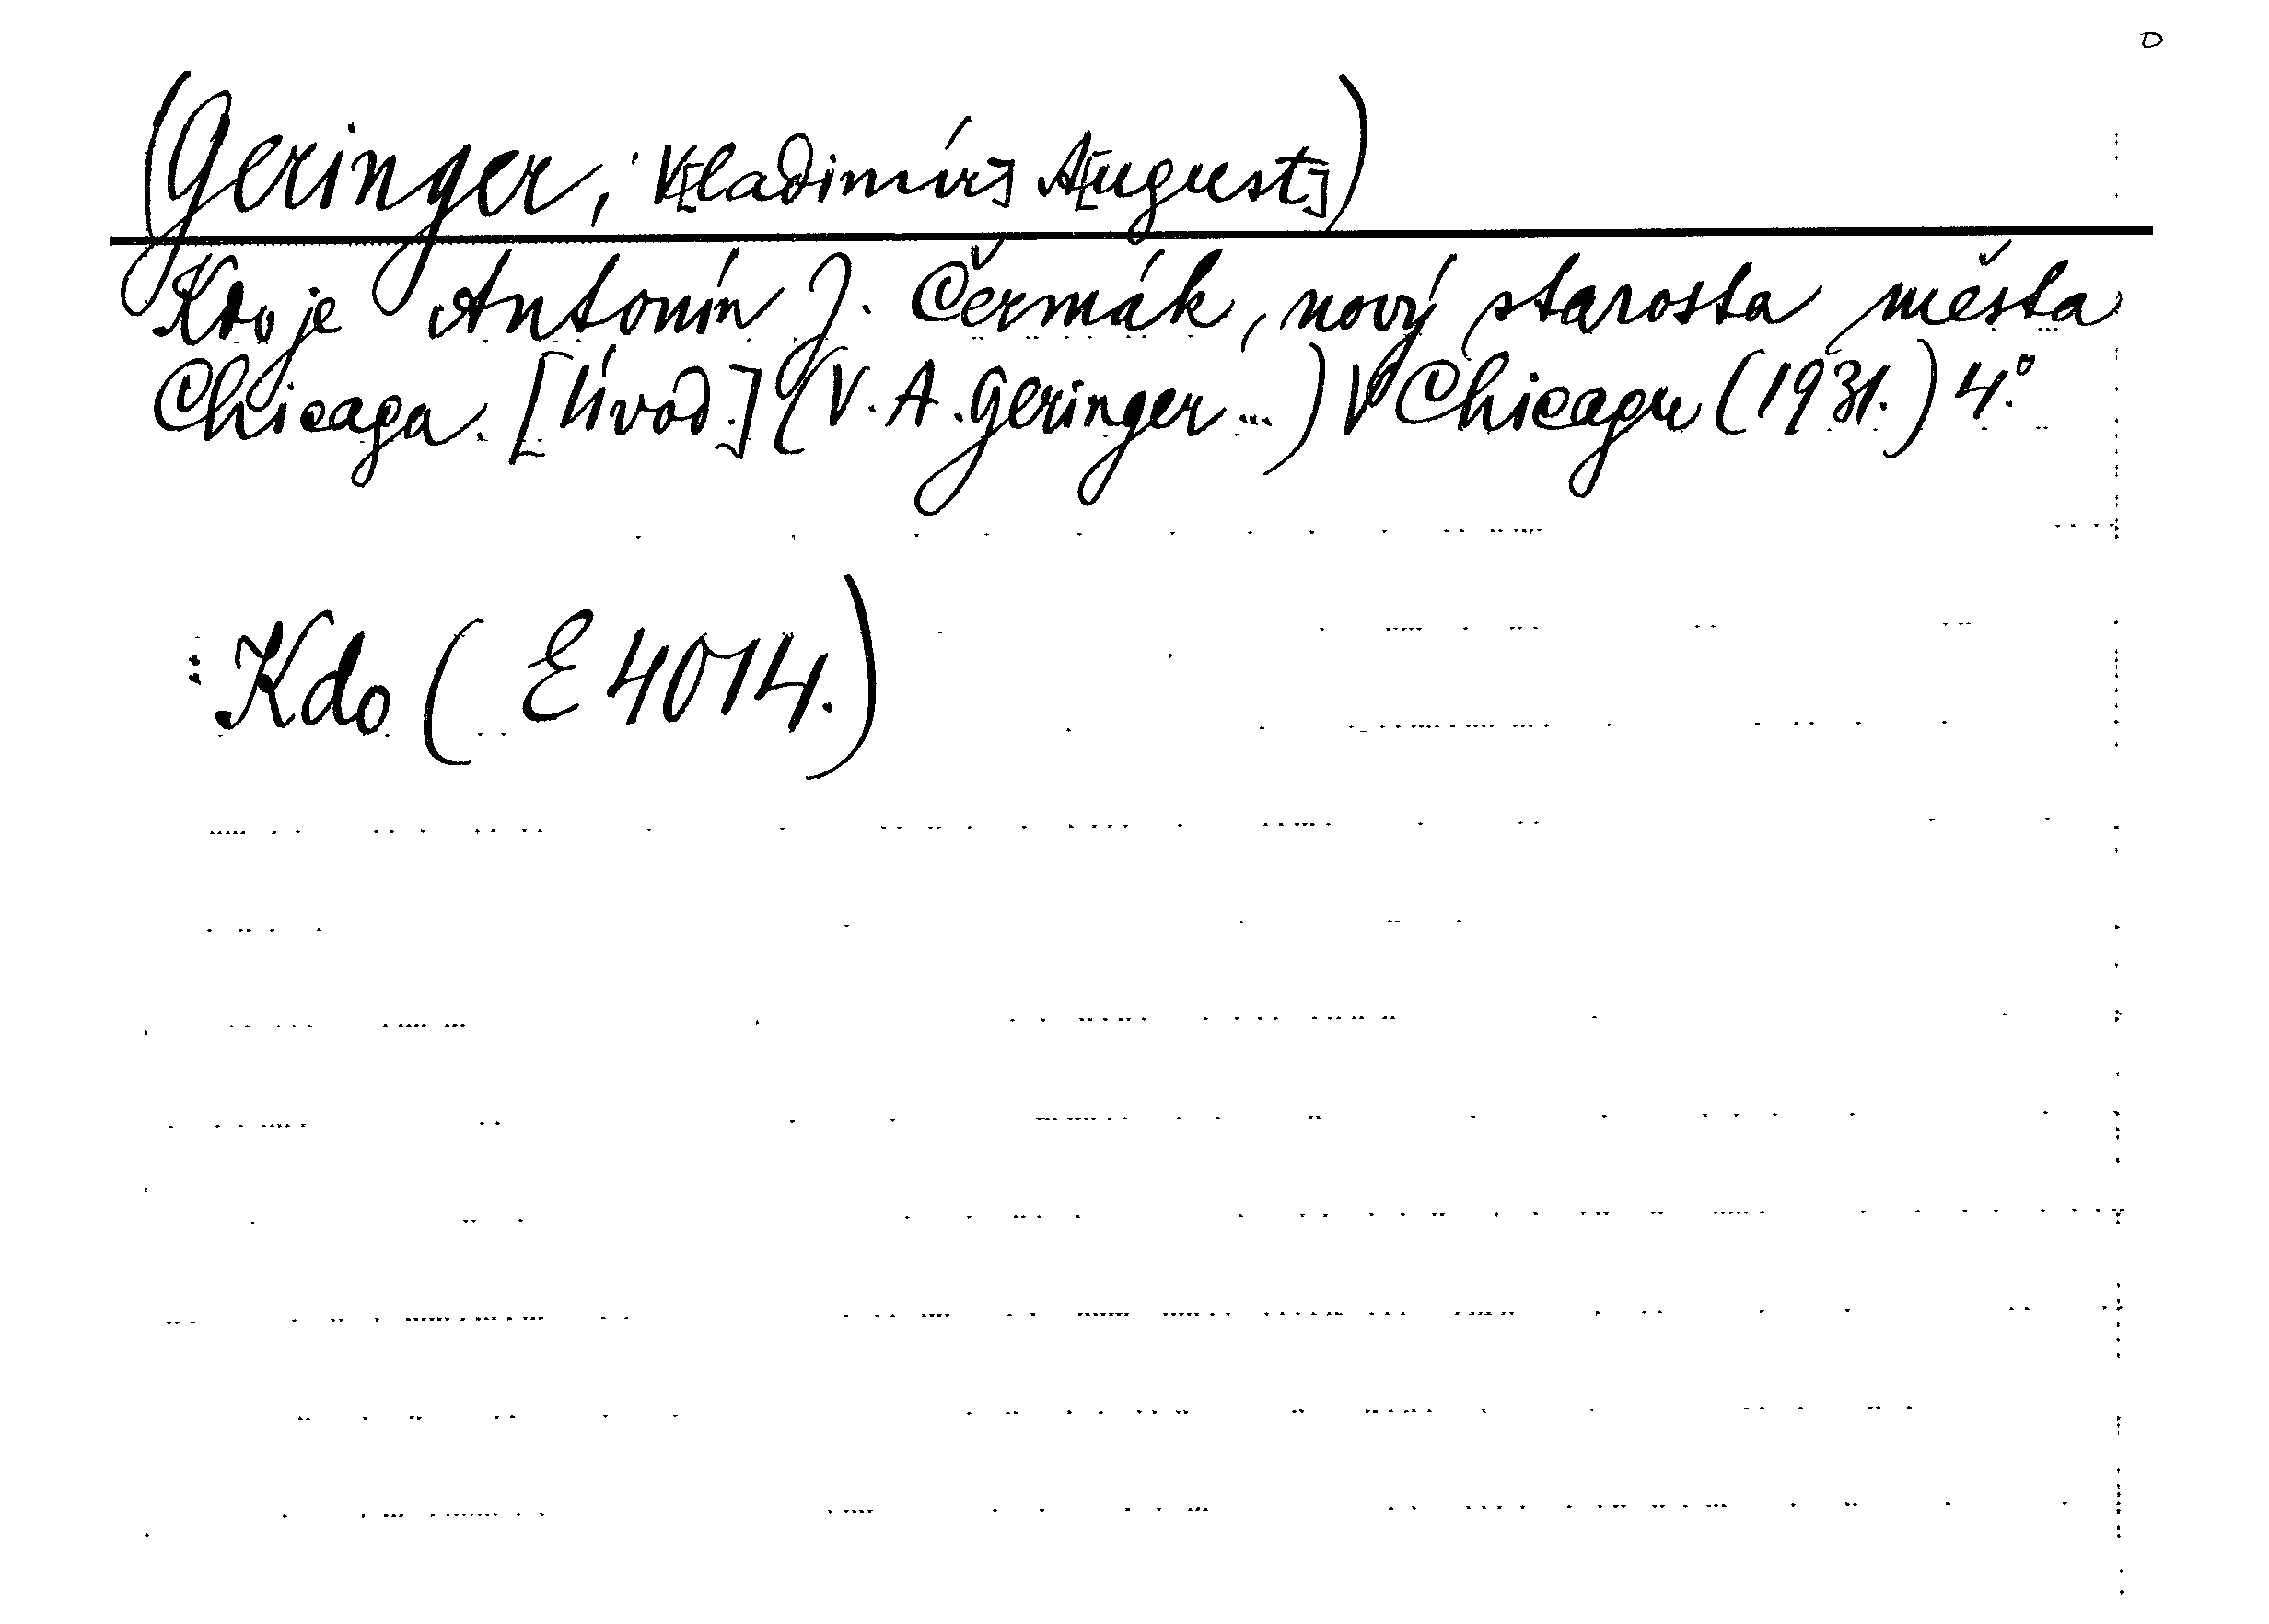 (Geringer, V[ladimír] A[ugust])
Kdo je Antonín J. Čermák, nový starosta města
Chicaga. [Úvod.] (V. A. Geringer ...) V Chicagu (1931.) 4°.
: Kdo ( E 4014.)